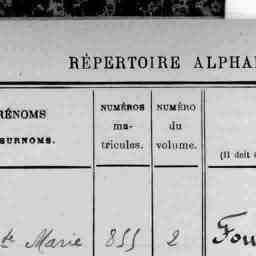 RÉPERTOIRE ALPHA
RÉNOMS
SURNOMS.
NUMÉROS
ma-
tricules.
NUMÉRO
du
volume.
(Il doit
te Marie 855 2 Fou